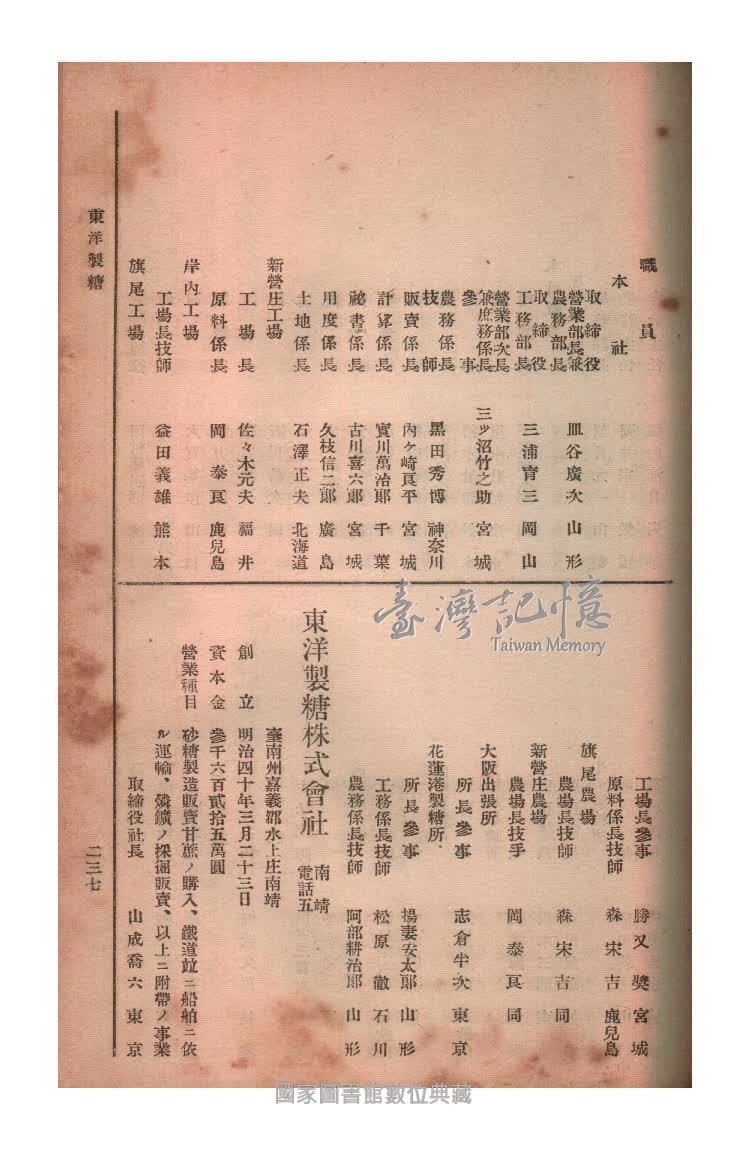 職員
本社
取締役
營業部長兼
農務部長 皿谷廣次 山形
取締役
工務部長 三浦育三 岡山
營業部次長
兼庶務係長
參事 三ツ沼竹之助 宮城
農務係長
技師 黒田秀博 神奈川
販賣係長 內ケ崎良平 宮城
計算係長 實川萬治郎 千葉
祕書係長 古川喜六郎 宮城
用度係長 久枝信二郎 廣島
土地係長 石澤正夫 北海道
新營庄工場
工場長 佐々木元夫 福井
原料係長 岡泰良 鹿兒島
岸內工場
工場長技師 益田義雄 熊本
旗尾工場
工場長參事 勝又奬 宮城
原料係長技師 森宋吉 鹿兒島
旗尾農場
農場長技師 森宋吉 同
新營庄農場
農場長技手 岡泰良 同
大阪出張所
所長參事 志倉半次 東京
花蓮港製糖所
所長參事 揚妻安太郞 山形
工務係長技師 松原徹 石川
農務係長技師 阿部耕治郞 山形
東洋製糖株式會社 南靖
電話五
臺南州嘉義郡水上庄南靖
創立 明治四十年三月二十三日
資本金 參千六百貳拾五萬圓
營業種目 砂糖製造販賣甘蔗ノ購入、鐵道竝ニ船舶ニ依
ル運輸、燐鑛ノ採掘販賣、以上ニ附帶ノ事業
取締役社長 山成喬六 東京
東洋製糖
二三七
臺灣記憶
Taiwan Memory
國家圖書館數位典藏